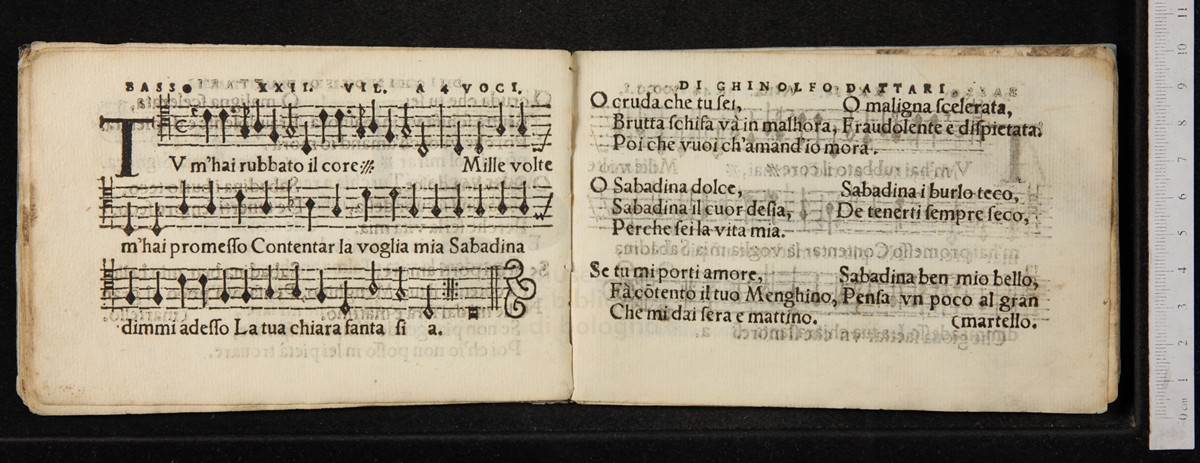 BASSO XXII. VIL. A 4 VOCI.
TV m'hai rubbato il core Mille volte
m'hai promeſſo Contentar la voglia mia Sabadina
dimmi adeſſo La tua chiara fanta ſi a.
DI GHINOLFO DATTARI.
O cruda che tu ſei,
Brutta ſchifa và in malhora,
Poi che vuoi ch'amand'io mora.
O maligna ſcelerata,
Fraudolente e diſpietata.
O Sabadina dolce,
Sabadina il cuor deſia,
Perche ſei la vita mia.
Sabadina i burlo teco,
De tenerti ſempre ſeco,
Se tu mi porti amore,
Fà cõtento il tuo Menghino,
Che mi dai ſera e mattino.
Sabadina ben mio bello,
Penſa vn poco al gran
(martello.